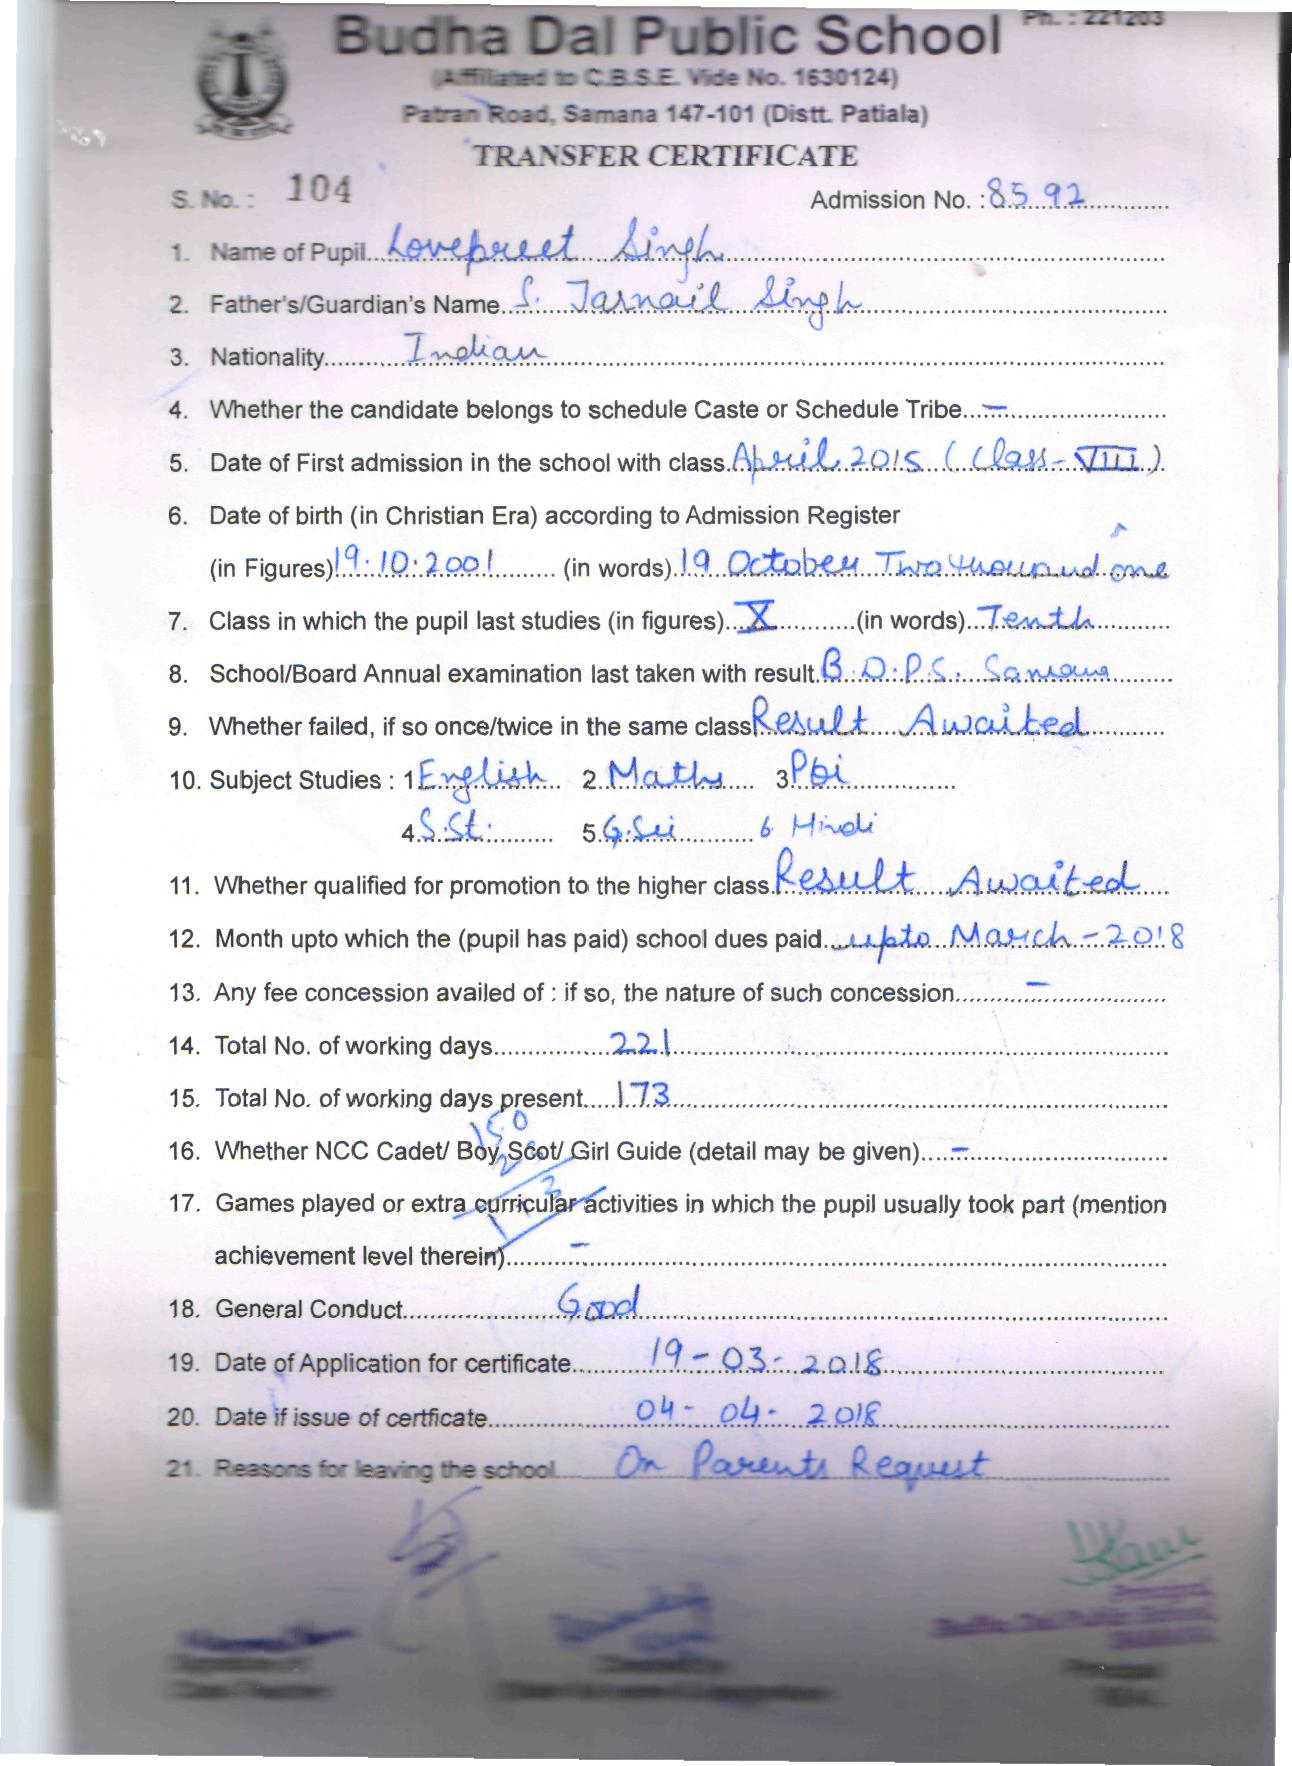 Ph. : 221203
Budha Dal Public School
(Affiliated to C.B.S.E. Vide No. 1630124)
Patran Road, Samana 147-101 (Distt. Patiala)
TRANSFER CERTIFICATE
S. No. : 104 Admission No. : 8592
1. Name of Pupil Lovepreet Singh
2. Father's/Guardian's Name S. Jarnail Singh
3. Nationality Indian
4. Whether the candidate belongs to schedule Caste or Schedule Tribe –
5. Date of First admission in the school with class April 2015 (Class-VIII)
6. Date of birth (in Christian Era) according to Admission Register
(in Figures) 19.10.2001 (in words) 19 October Two thousand one
7. Class in which the pupil last studies (in figures) X (in words) Tenth
8. School/Board Annual examination last taken with result B.D.P.S. Samana
9. Whether failed, if so once/twice in the same class Result Awaited
10. Subject Studies : 1 English 2. Maths 3 Pbi
4 S.St. 5 G.Sci 6 Hindi
11. Whether qualified for promotion to the higher class Result Awaited
12. Month upto which the (pupil has paid) school dues paid upto March-2018
13. Any fee concession availed of : if so, the nature of such concession –
14. Total No. of working days 221
15. Total No. of working days present 173
150
16. Whether NCC Cadet/ Boy Scot/ Girl Guide (detail may be given) –
17. Games played or extra curricular activities in which the pupil usually took part (mention
achievement level therein) –
18. General Conduct Good
19. Date of Application for certificate 19-03-2018
20. Date if issue of certficate 04-04-2018
21. Reasons for leaving the school On Parents Request
Principal
Budha Dal Public School